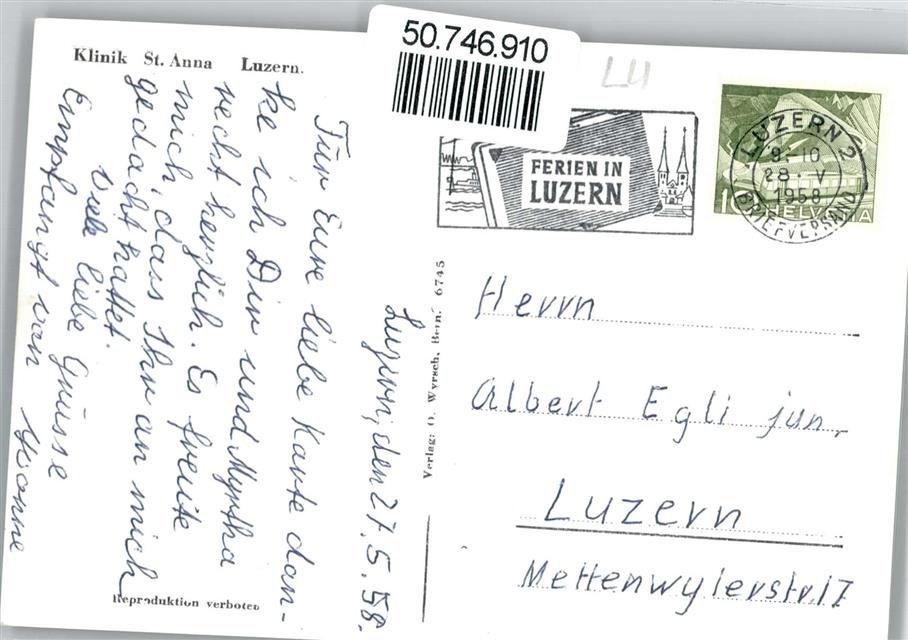 Klinik St. Anna Luzern.
50.746.910
LU
FERIEN IN
LUZERN
LUZERN 2
9-10
28. V
1958
BRIEFVERSAND
10 HELVETIA
Luzern, den 27.5.58.
Für Eure liebe Karte dan-
ke ich Dir und Myrtha
recht herzlich. Es freute
mich, dass Ihr an mich
gedacht hattet.
Viele liebe Grüsse
Empfangt von Yvonne
Verlag: O. Wyrsch, Bern. 6745
Herrn
Albert Egli jun.
Luzern
Mettenwylerstr. 17
Reproduktion verboten